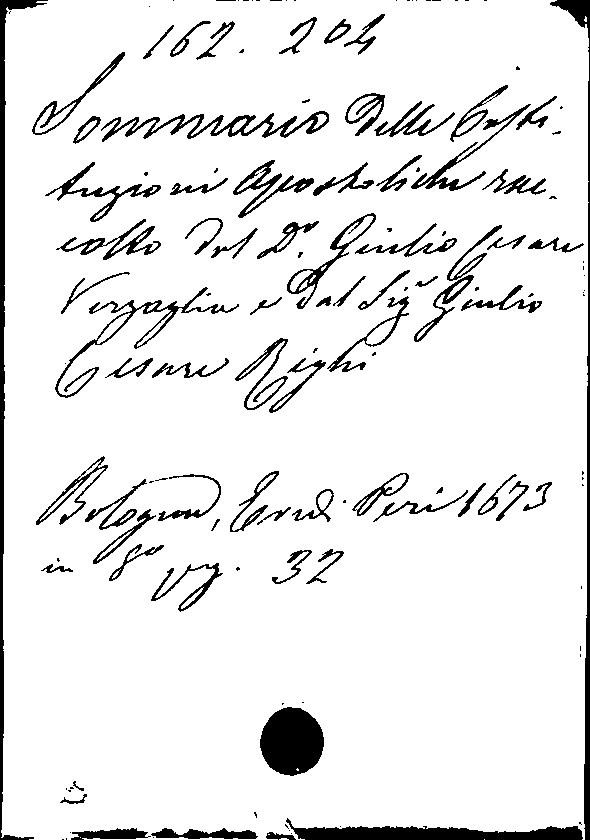 162. 204
Sommario delle Costi-
tuzioni Apostoliche rac-
colto dal Dr. Giulio Cesare
Verzaglia e dal Sigr Giulio
Cesare Righi
Bologna, Eredi Peri 1673
in 8o pg. 32